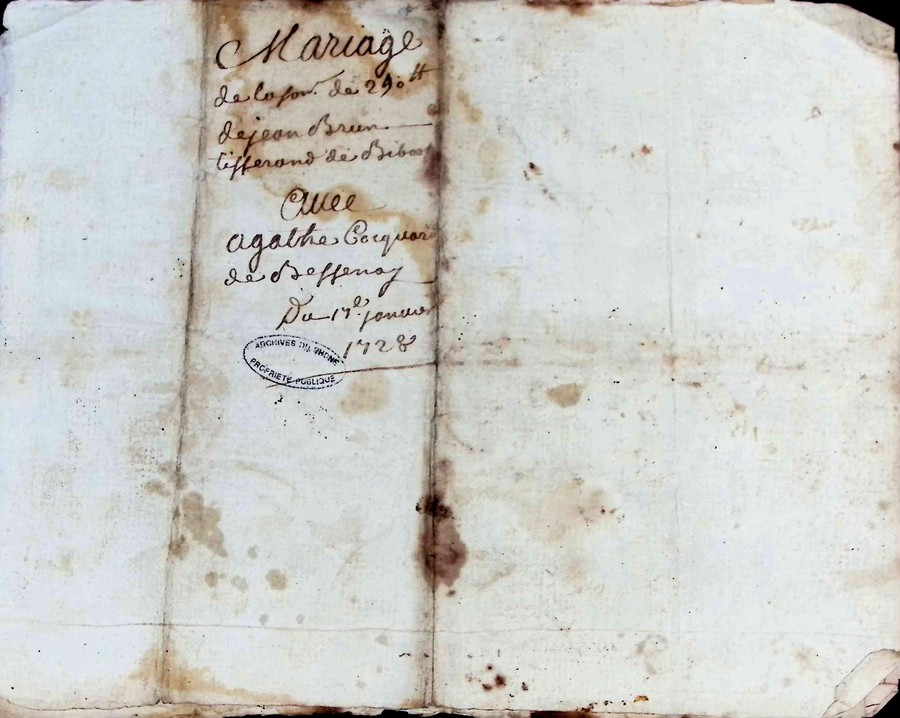 Mariage
de la som. de 290 ₶
de jean Brun
tisserand de Bibost
Avec
agathe Cocquard
de Bessenay
Du 17e. janvier
1728
ARCHIVES DU RHONE
PROPRIETE PUBLIQUE